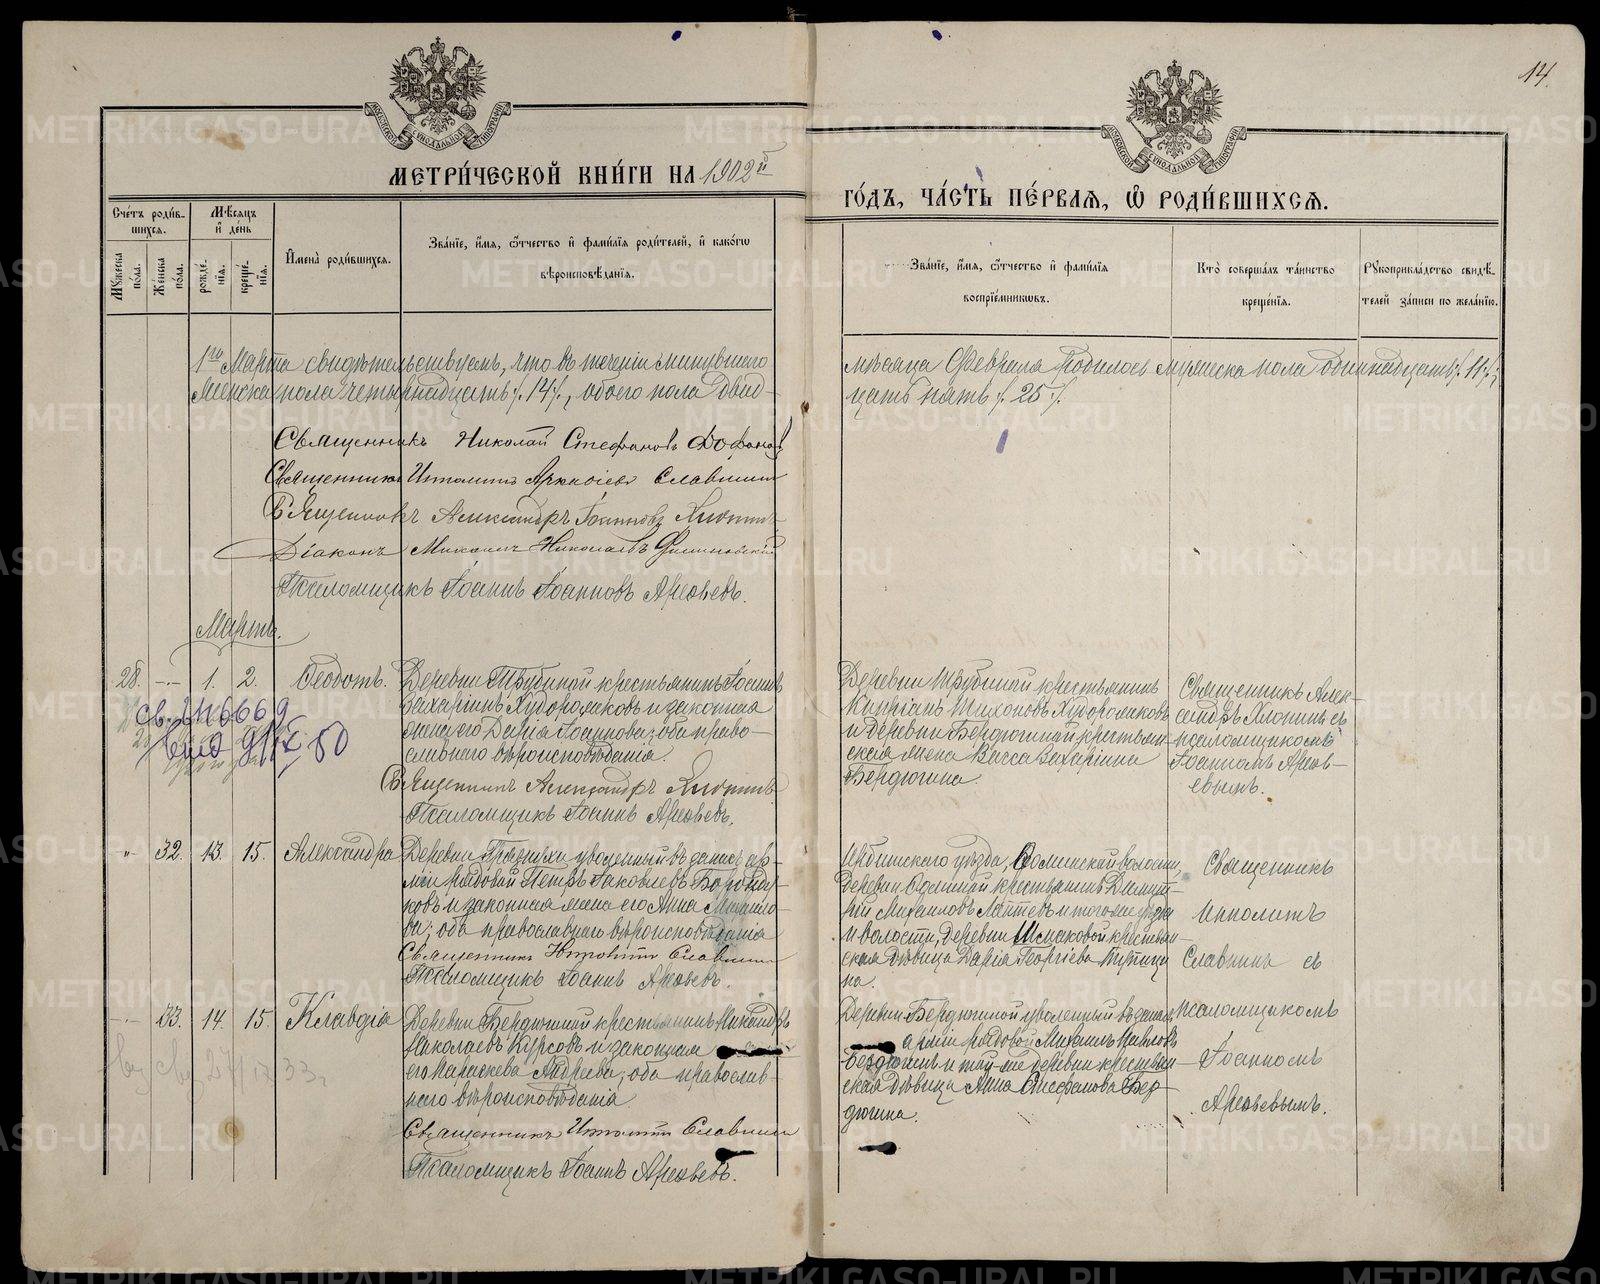 14.
МОСКОВСКОЙ СѴНОДАЛЬНОЙ ТИПОГРАФІИ
МОСКОВСКОЙ СѴНОДАЛЬНОЙ ТИПОГРАФІИ
МЕТРИ́ЧЕСКОЙ КНИ́ГИ НА 1902й
ГО́ДЪ, ЧА́СТЬ ПЕ́РВАЯ, Ѽ РОДИ́ВШИХСЯ.
Сче́тъ роди́в-
шихся.
Мѣсяцъ
и̂ день
Мꙋжеска
пола.
Женска
пола.
рожде́-
нїя.
креще́-
нїя.
И̂мена̀ роди́вшихся.
Зва́нїе, и̂мя, ѿчество и̂ фами́лїя роди́телей, и̂ како́гѡ
вѣроисповѣданїя.
Зва́нїе, и̂мя, ѿчество и̂ фами́лїя
воспрїе́мникѡвъ.
Кто̀ соверша́лъ та́инство
креще́нїя.
Рꙋкоприкла́дство свидѣ-
телей за́писи по жела́нїю.
1го Марта свидѣтельствуемъ, что въ теченіи минувшаго
женска пола четырнадцать /. 14 /., обоего пола двад-
мѣсяца Февраля родилось мужеска пола одиннадцать /. 11 /.,
цать пять /. 25 /.
Священникъ Николай Стефановъ
Священникъ Ипполитъ Славнинъ
Священникъ Александръ Іоанновъ Хлопинъ
Діаконъ Михаилъ Николаевъ
Псаломщикъ Іоаннъ Іоанновъ Арефьевъ.
Мартъ.
28. -.- 1. 2. Ѳеодотъ.
Деревни Трубиной крестьянинъ Іоаннъ
Захаринъ Худорожковъ и законная
жена его Дарія Іоаннова; оба право-
славнаго вѣроисповѣданія.
Священникъ Александръ Хлопинъ
Псаломщикъ Іоаннъ Арефьевъ.
Деревни Трубиной крестьянинъ
Кипріанъ Тихоновъ Худорожковъ
и деревни Бердюгиной крестьян-
ская жена Васса Захаріина
Бердюгина.
Священникъ Алек-
сандръ Хлопинъ съ
псаломщикомъ
Іоанномъ Арефь-
евымъ.
" 32. 13. 15. Александра
Деревни уволенный въ запасъ ар-
міи рядовой Петръ Іаковлевъ
и законная жена его Анна Михайло-
ва; оба православнаго вѣроисповѣданія
Священникъ Ипполитъ Славнинъ
Псаломщикъ Іоаннъ Арефьевъ.
Ирбитскаго уѣзда, волости,
деревни крестьянинъ Димит-
рій Михаиловъ Лаптевъ и того же уѣзда
и волости, деревни крестьян-
ская дѣвица Дарія Георгіева
на.
Священникъ
Ипполитъ
Славнинъ съ
-.- 33. 14. 15. Клавдія
Деревни Бердюгиной крестьянинъ
Николаевъ Курсовъ и законная
его Параскева Андреева; оба православ-
наго вѣроисповѣданія.
Священникъ Ипполитъ Славнинъ
Псаломщикъ Іоаннъ Арефьевъ.
Деревни Бердюгиной уволенный въ запасъ
арміи рядовой Михаилъ Павловъ
Бердюгинъ и той-же деревни крестьян-
ская дѣвица Анна Стефанова Бер-
дюгина.
псаломщикомъ
Іоанномъ
Арефьевымъ.
METRIKI.GASO-URAL.RU